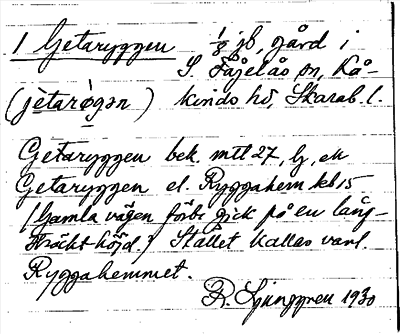 1 Getaryggen 1/8 jb, gård i
S. Fågelås sn, Kå-
(jètarǿgən) kinds hd, Skarab. l.
Getaryggen bek. mtl 27, lj, ek
Getaryggen el. Ryggahem kb 15
(Gamla vägen förbi gick på en lång-
sträckt höjd.) Stället kallas vanl.
Ryggahemmet.
R. Ljunggren 1930